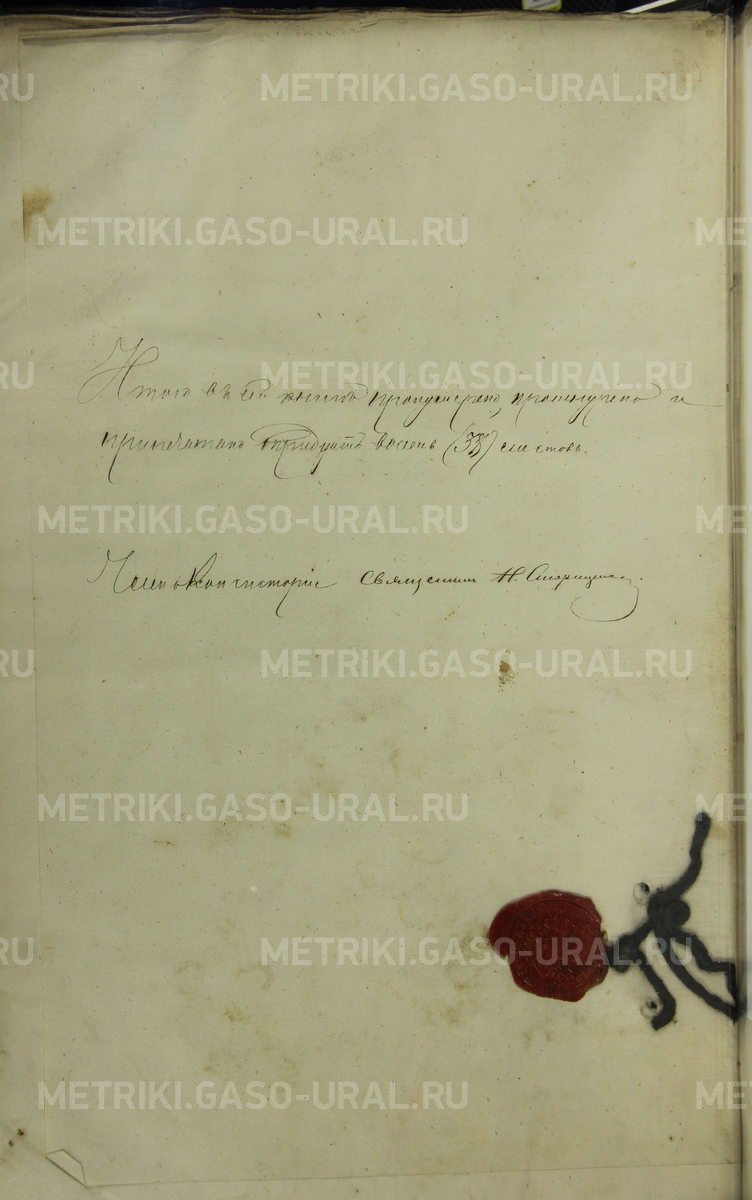 METRIKI.GASO-URAL.RU
METRIKI.GASO-URAL.RU
Итого въ сей книгѣ пронумеровано, прошнуровано и
припечатано тридцать восемь (38) листовъ.
METRIKI.GASO-URAL.RU
Членъ Консисторіи Священникъ Н.
METRIKI.GASO-URAL.RU
METRIKI.GASO-URAL.RU
METRIKI.GASO-URAL.RU
METRIKI.GASO-URAL.RU